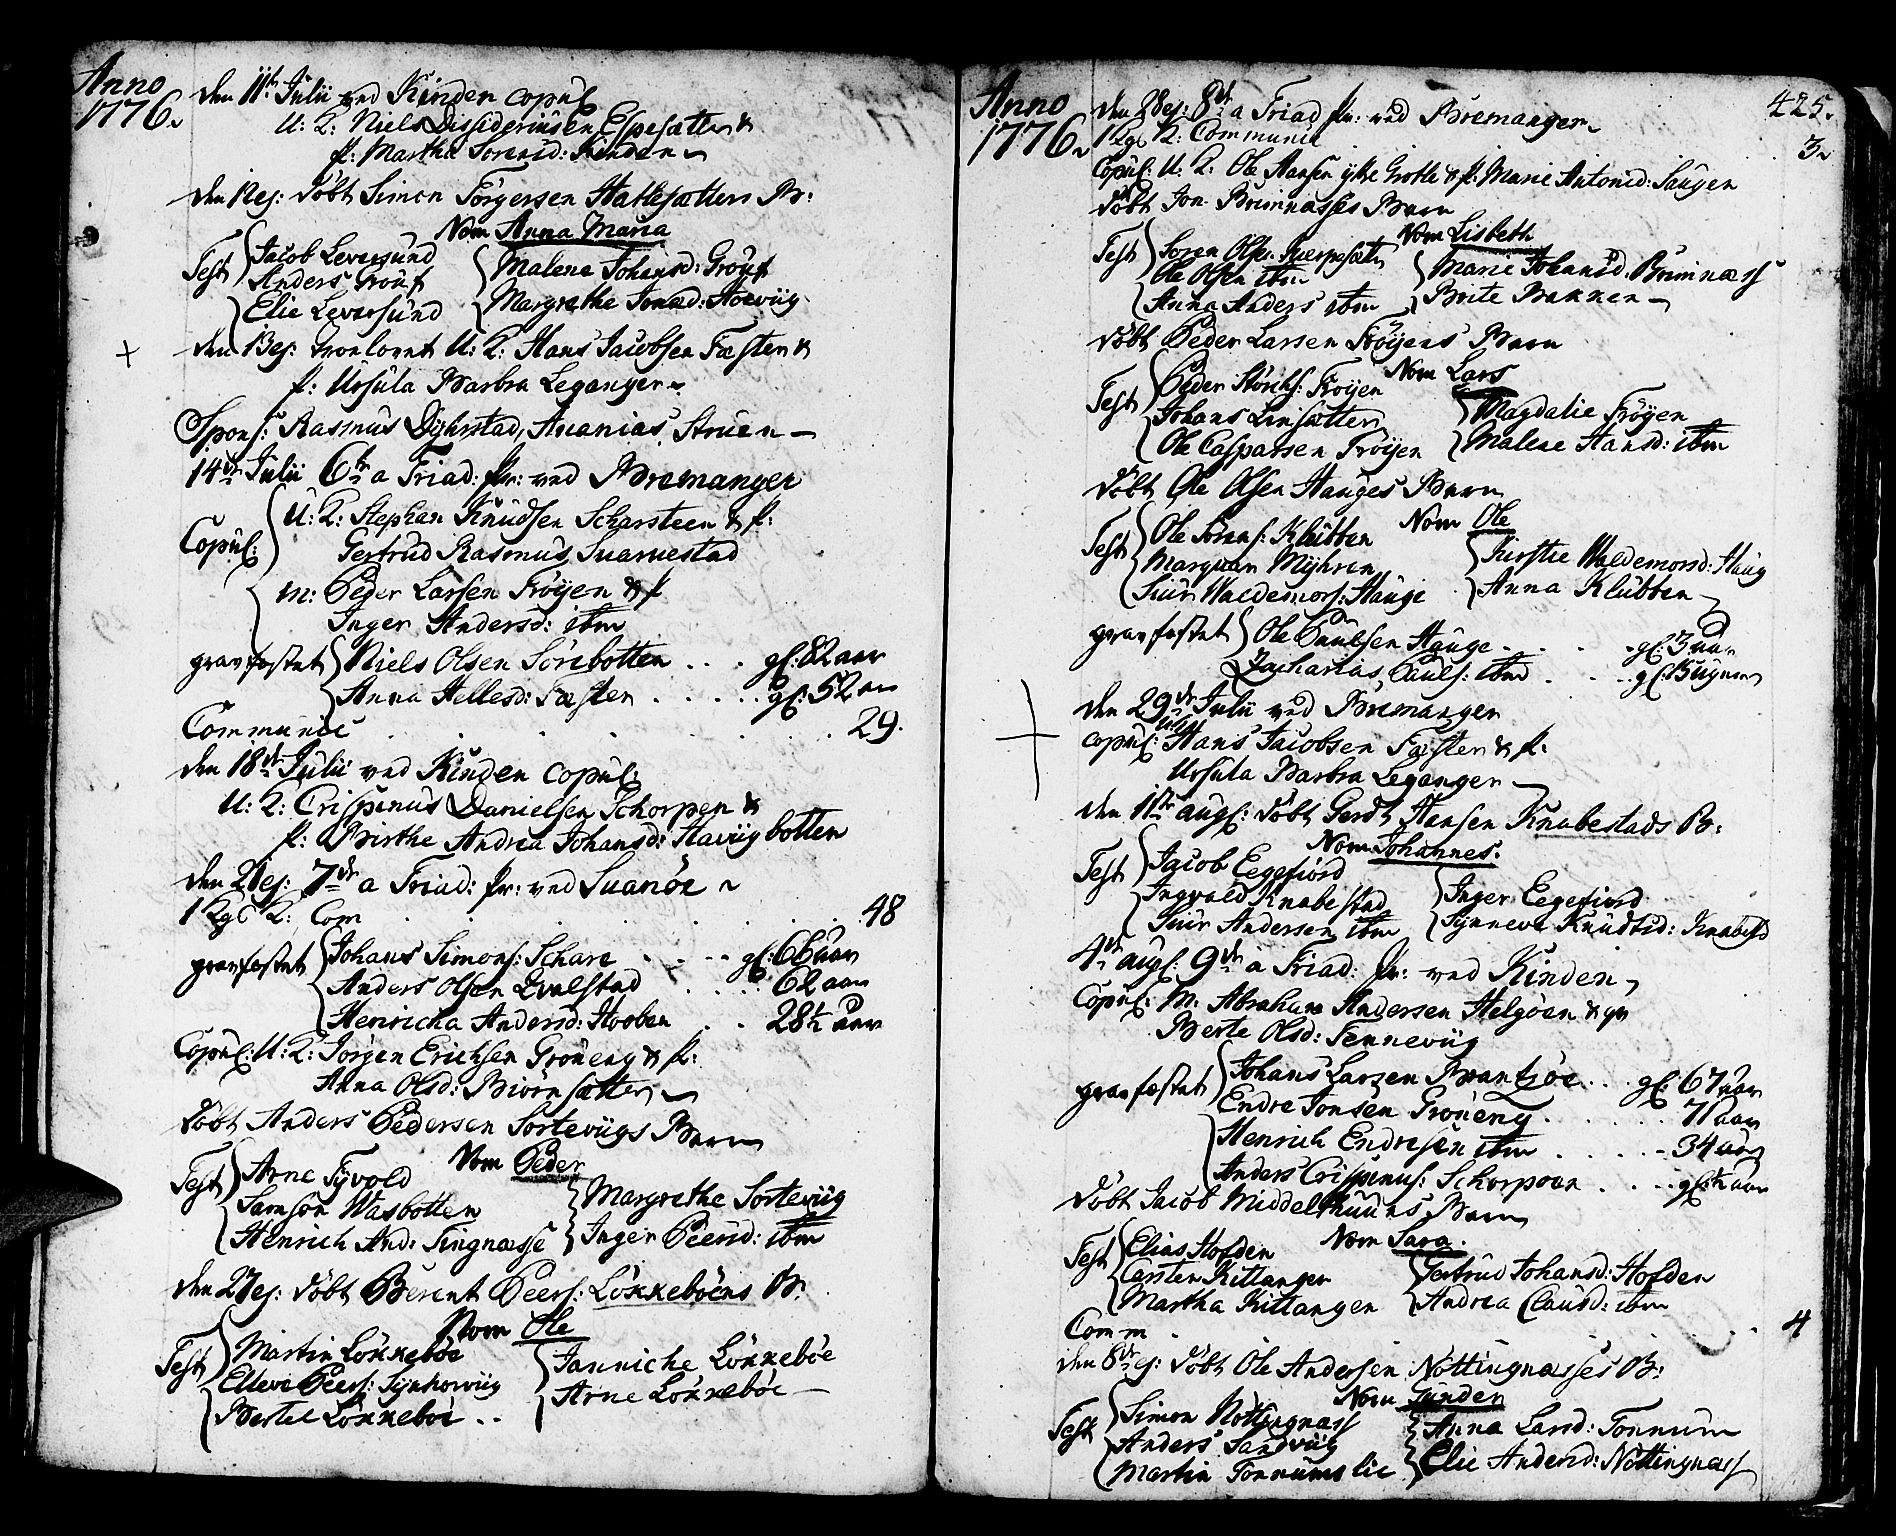 Anno
1776.
den 11te Julii ved Kinden copul:
U: K: Niels Dissiderinsen Espesætter &
p: Martha Sorensd: Kinden
den 12ej: döbt Simon Jörgersen Hatlesætters B:
Nom Anna Maria
Test Jacob Leversund
Anders Grout
Elie Leversund
Malene Johansd: Grout
Margrethe Jonæd: Hoevüg
den 13ej: trolovet U: K: Hans Jacobsen Fæster &
p: Ursula Barbra Leganger
Spons: Rasmus Dyhrstad, Ananias Struen
14de Julii 6te a Triad: pr: ved Bremanger
Copul: U: K: Stephan Knudsen Scharsteen & p:
Gertrud Rasmus Suarvestad
m: Peder Larsen Fröyen & p
Inger Andersd: ibm
gravfæstet Niels Olsen Sörebotten . . . gl: 82 aar
Anna Hellesd: Fæster . . . . . gl: 52 aar
Communic . . . . . 29.
den 18de Julii ved Kinden copul:
U: K: Crispinus Danielsen Schorpen &
p: Birthe Andrea Johansd: Havügbotten
den 21ej: 7de a Triad: pr: ved Suanöe
1 Kge K: Com . . . . . 48
gravfæstet Johans Simons: Schare . . . gl: 66 aar
Anders Olsen Evalstad . . . 62 aar
Henricha Andersd: Hooben . . 28½ aar
Copul: U: K: Jörgen Erichsen Gröneng & p:
Anna Olsd: Biörnsætter
döbt Anders Pedersen Sortevügs Barn
Nom Peder
Test Arne Tyvold
Samson Wasbotten
Henrich And: Tingnæsse
Margrethe Sortevüg
Inger Peersd: ibm
den 27ej: döbt Berent Peers: Lökkeböens B:
Nom Ole
Test Martin Lökkeböe
Elleve Peers: Synhovüg
Bertel Lökkeböe . .
Janniche Lökkeböe
Arne Lökkeböe
425.
Anno
1776
den 28ej: 8de a Triad pr: ved Bremanger
1 Kge K: Communic . . 3
Copul: U: K: Ole Hansen ytre Grotle & p: Marie Antonid: Saugen
döbt Jon Brimnæsses Barn
Nom Lisbeth
Test Soren Olsen
Ole Olsen ibm
Anna Anders ibm
Marie Johansd. Brimnæss
Brite Bakken
döbt Peder Larsen Fröyens Barn
Nom Lars
Test Peder Fröyen
Johans Linsætter
Ole Casparsen Fröyen
Magdalie Fröyen
Malene Hansd: ibm
döbt Ole Olsen Hauges Barn
Nom Ole
Test Ole Sörens: Klubben
Marquar Myhren
Siur Waldemors: Hauge
Kirstie Waldemorsd: Haug
Anna Klübben
gravfæstet Ole Paulsen Hauge . . . gl: 3 aar
Zacharias Pauls: ibm . . . gl: 15 uger
den 29de Julii ved Bremanger
copul: Hans Jacobsen Fæster & p:
Ursula Barbra Leganger
den 1ste aug: döbt Gerdt Hansen Knabestads B:
Nom Johannes.
Test Jacob Eegefiord
Ingvald Knabestad
Siur Andersen ibm
Inger Eegefiord
Synneve Knudtid: Knabestd
4de aug: 9de a Triad: pr: ved Kinden
Copul: M: Abraham Andersen Helgöen & qv
Berte Olsd: Tennevüg
gravfæstet Johans Larsen Brantzöe . . . gl: 67 aar
Endre Jonsen Gröneng . . . . 71 aar
Henrich Endresen ibm . . . . 34 aar
Anders Crispinus: Schorpoen . . . gl: ½ aar
döbt Jacob Middelthuuns Barn
Nom Sara.
Test Elias Hofden
Carsten Kittanger
Martha Kittangen
Gertrud Johansd: Hofden
Andrea Clausd: ibm
Comm . . . 4
den 8de ej: döbt Ole Andersen Nöttingnæsses B:
Nom Gunder
Test Simon Nöttingnæss
Anders Sandvüg
Martin Tonnumslie
Anna Larsd: Tonnum
Elie Andersd: Nöttingnæss